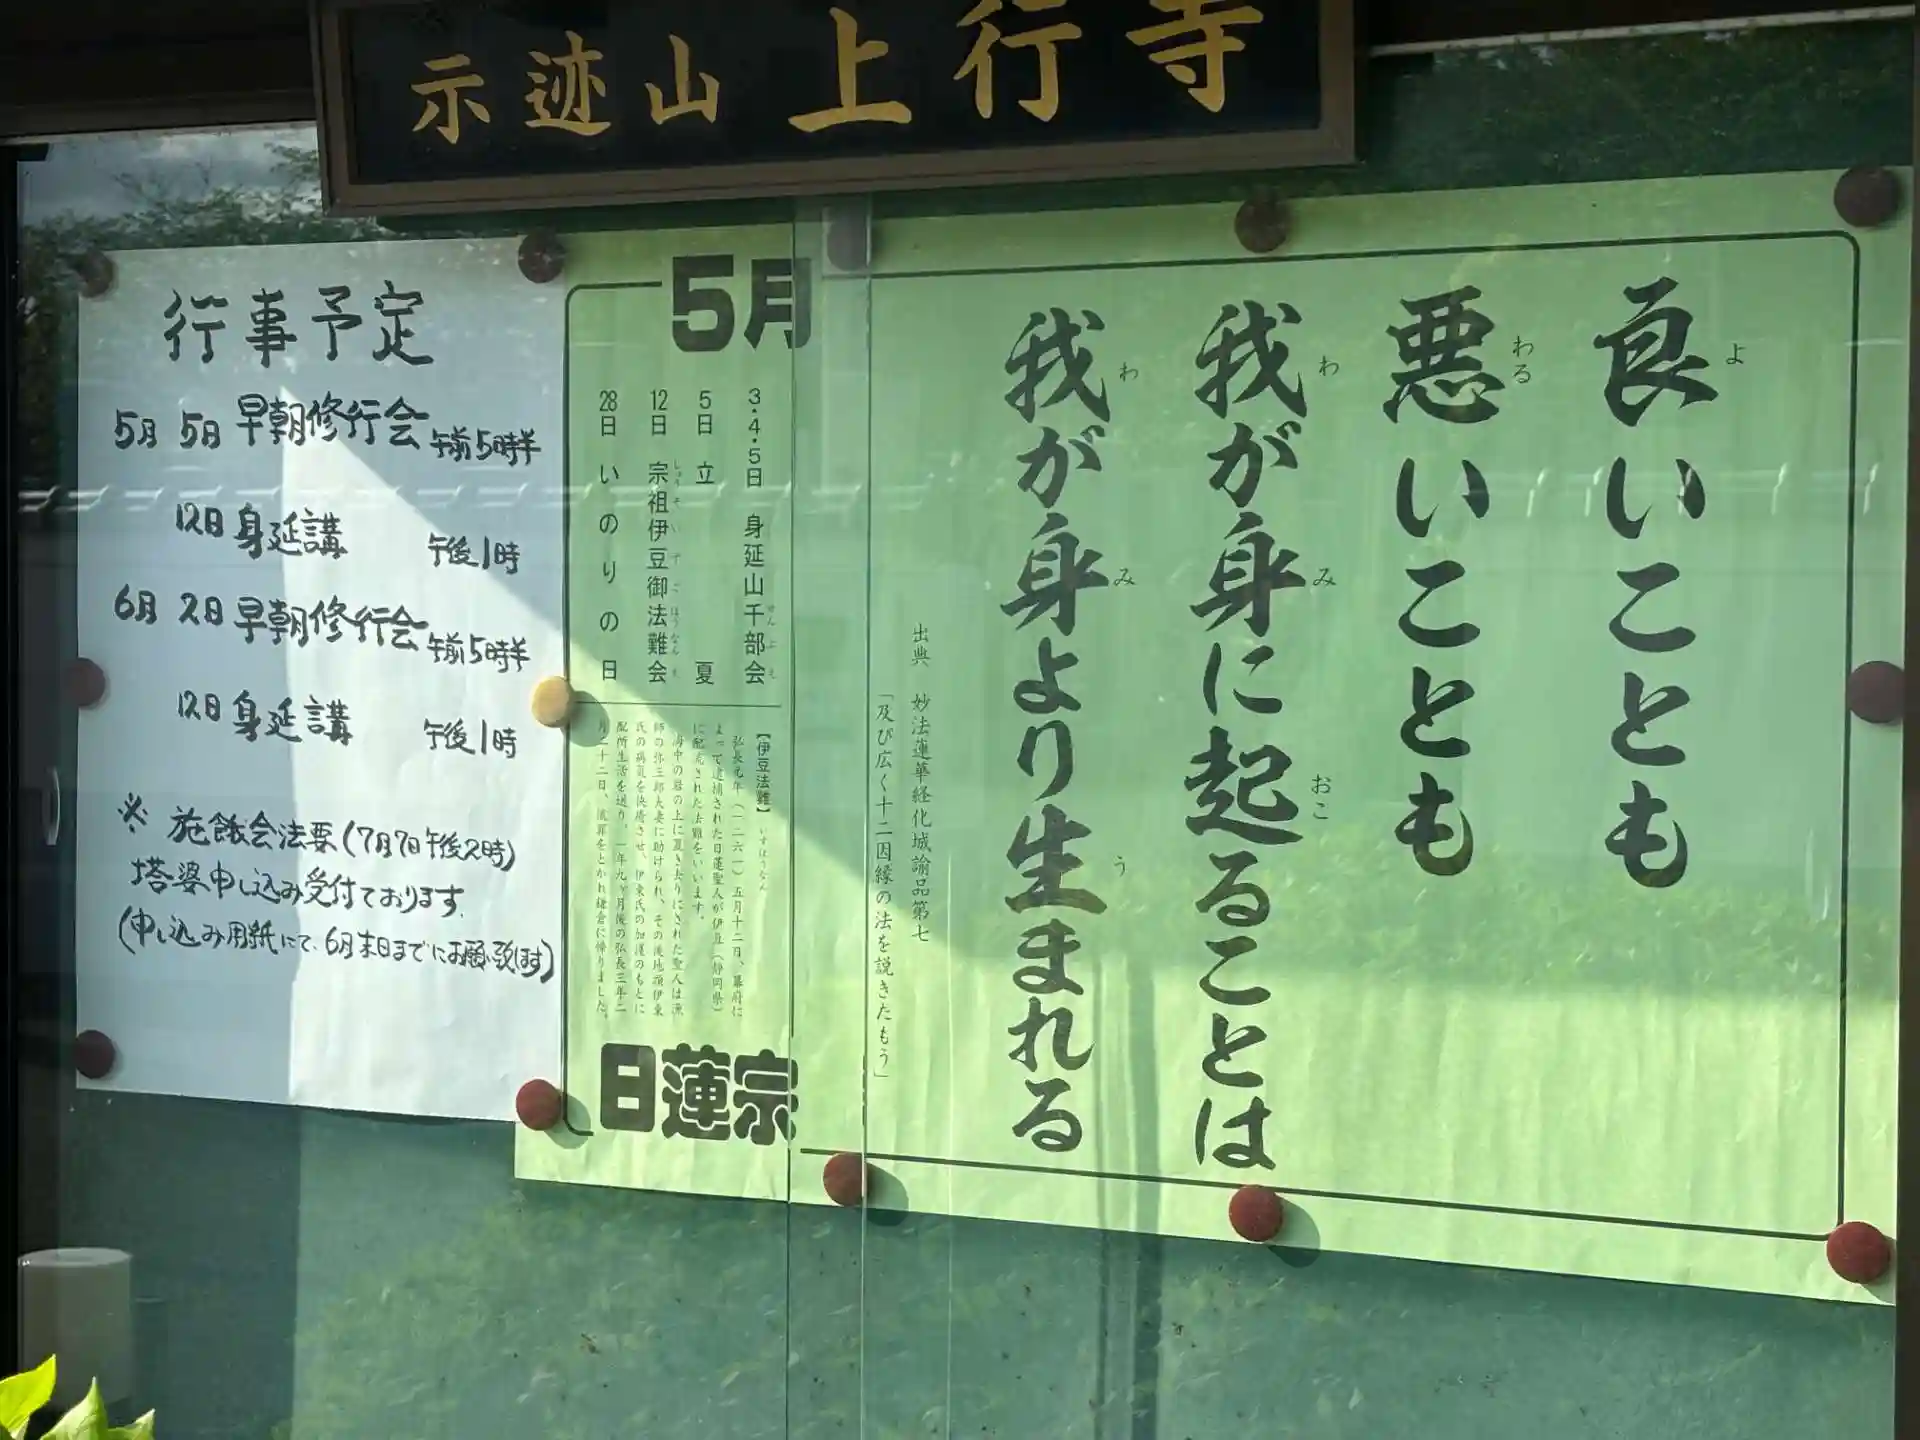 示迹山 上行寺
良いことも
悪いことも
我が身に起ることは
我が身より生まれる
よ
わる
わ
み
おこ
わ
み
う
出典 妙法蓮華経化城諭品第七
「及び広く十二因縁の法を説きたもう」
5月
3・4・5日 身延山千部会
せんぶえ
5日 立夏
12日 宗祖伊豆御法難会
しゅうそいずごほうなんえ
28日 いのりの日
【伊豆法難】いずほうなん
弘長元年(一二六一)五月十二日、幕府に
よって逮捕された日蓮聖人が伊豆(静岡県)
に配流された法難をいいます。
海中の岩の上に置き去りにされた聖人は漁
師の弥三郎夫妻に助けられ、その後地頭伊東
氏の病気を快癒させ、伊東氏の加護のもとに
配所生活を送り、一年九ヶ月後の弘長三年二
月二十二日、流罪をとかれ鎌倉に帰りました。
日蓮宗
行事予定
5月 5日 早朝修行会 午前5時半
12日 身延講 午後1時
6月 2日 早朝修行会 午前5時半
12日 身延講 午後1時
※ 施餓会法要(7月7日午後2時)
塔婆申し込み受付ております。
(申し込み用紙にて、6月末日までにお願い致します)